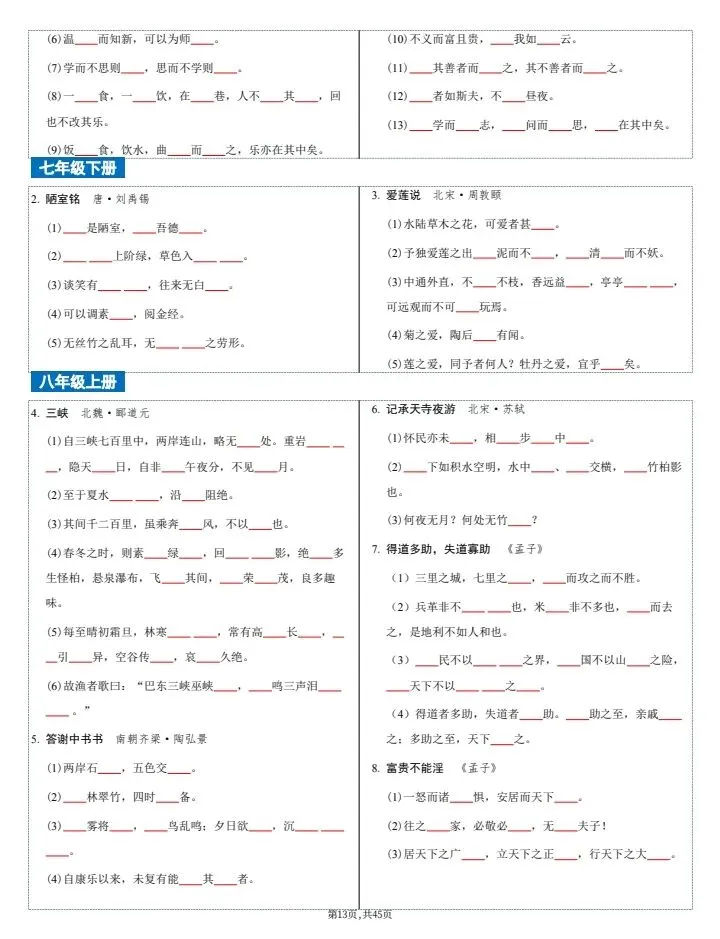 (6)温____而知新，可以为师____。
(7)学而不思则____，思而不学则____。
(8)一____食，一____饮，在____巷，人不____其____，回
也不改其乐。
(9)饭____食，饮水，曲____而____之，乐亦在其中矣。
(10)不义而富且贵，____我如____云。
(11)____其善者而____之，其不善者而____之。
(12)____者如斯夫，不____昼夜。
(13)____学而____志，____问而____思，____在其中矣。
七年级下册
2. 陋室铭 唐·刘禹锡
(1)____是陋室，____吾德____。
(2)____ ____上阶绿，草色入____ ____。
(3)谈笑有____ ____，往来无白____。
(4)可以调素____，阅金经。
(5)无丝竹之乱耳，无____ ____之劳形。
3. 爱莲说 北宋·周敦颐
(1)水陆草木之花，可爱者甚____。
(2)予独爱莲之出____泥而不____，____清____而不妖。
(3)中通外直，不____不枝，香远益____，亭亭____ ____，
可远观而不可____玩焉。
(4)菊之爱，陶后____有闻。
(5)莲之爱，同予者何人？牡丹之爱，宜乎____矣。
八年级上册
4. 三峡 北魏·郦道元
(1)自三峡七百里中，两岸连山，略无____处。重岩____ __
__，隐天____日，自非____午夜分，不见____月。
(2)至于夏水____ ____，沿____阻绝。
(3)其间千二百里，虽乘奔____风，不以____也。
(4)春冬之时，则素____绿____，回____ ____影，绝____多
生怪柏，悬泉瀑布，飞____其间，____荣____茂，良多趣
味。
(5)每至晴初霜旦，林寒____ ____，常有高____长____，__
__引____异，空谷传____，哀____久绝。
(6)故渔者歌曰：“巴东三峡巫峡____，____鸣三声泪____
____。”
5. 答谢中书书 南朝齐梁·陶弘景
(1)两岸石____，五色交____。
(2)____林翠竹，四时____备。
(3)____雾将____，____鸟乱鸣；夕日欲____，沉____ ____
____。
(4)自康乐以来，未复有能____其____者。
6. 记承天寺夜游 北宋·苏轼
(1)怀民亦未____，相____步____中____。
(2)____下如积水空明，水中____、____交横，____竹柏影
也。
(3)何夜无月？何处无竹____？
7. 得道多助，失道寡助 《孟子》
（1）三里之城，七里之____，____而攻之而不胜。
（2）兵革非不____ ____也，米____非不多也，____而去
之，是地利不如人和也。
（3）____民不以____ ____之界，____国不以山____之险，
____天下不以____ ____之____。
（4）得道者多助，失道者____助。____助之至，亲戚____
之；多助之至，天下____之。
8. 富贵不能淫 《孟子》
(1)一怒而诸____惧，安居而天下____。
(2)往之____家，必敬必____，无____夫子！
(3)居天下之广____，立天下之正____，行天下之大____。
第13页,共45页